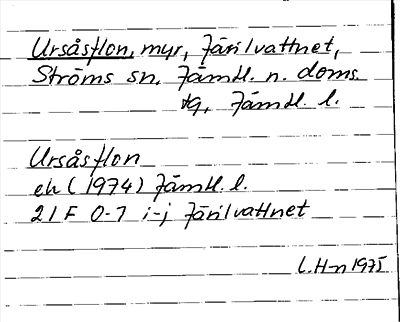 Ursåsflon, myr, Järilvattnet,
Ströms sn, Jämtl. n. doms.
tg, Jämtl. l.
Ursåsflon
ek (1974) Jämtl. l.
21 F 0-1 i-j Järilvattnet
L.H-n 1975